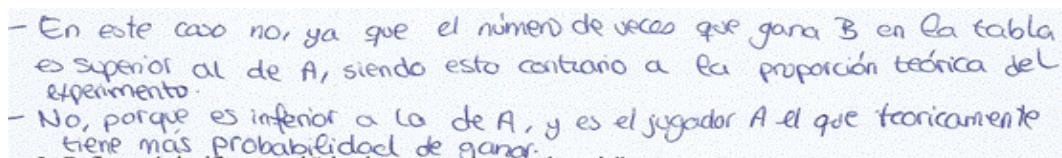 - En este caso no, ya que el número de veces que gana B en la tabla
es superior al de A, siendo esto contrario a la proporción teórica del
experimento.
- No, porque es inferior a la de A, y es el jugador A el que teoricamente
tiene más probabilidad de ganar.